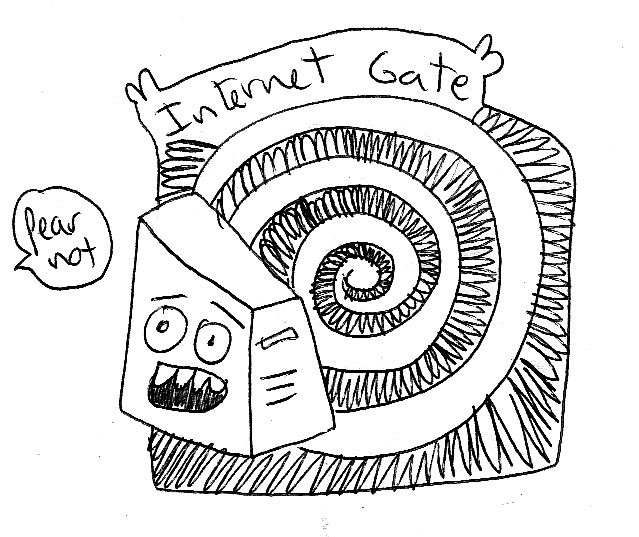 Internet Gate
Pear
not